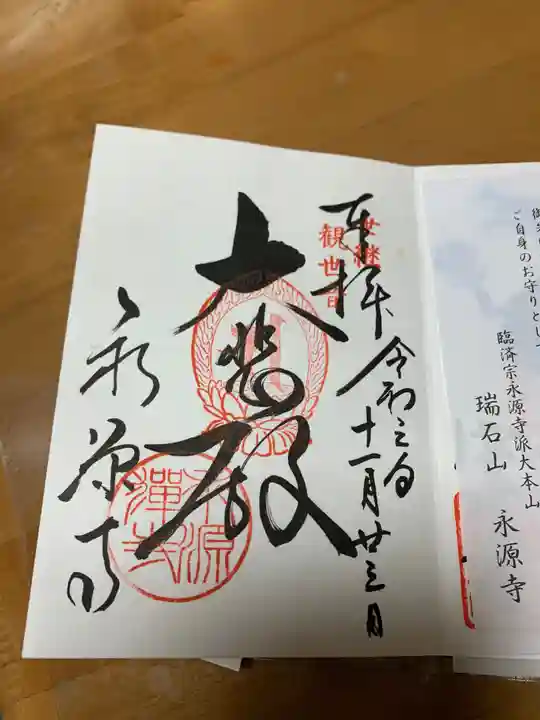 ご自身のお守りとして
臨済宗永源寺派大本山
瑞石山 永源寺
奉拝 令和 年十一月廿三日
世継
観世音
大悲殿
永源寺
永源
禅寺